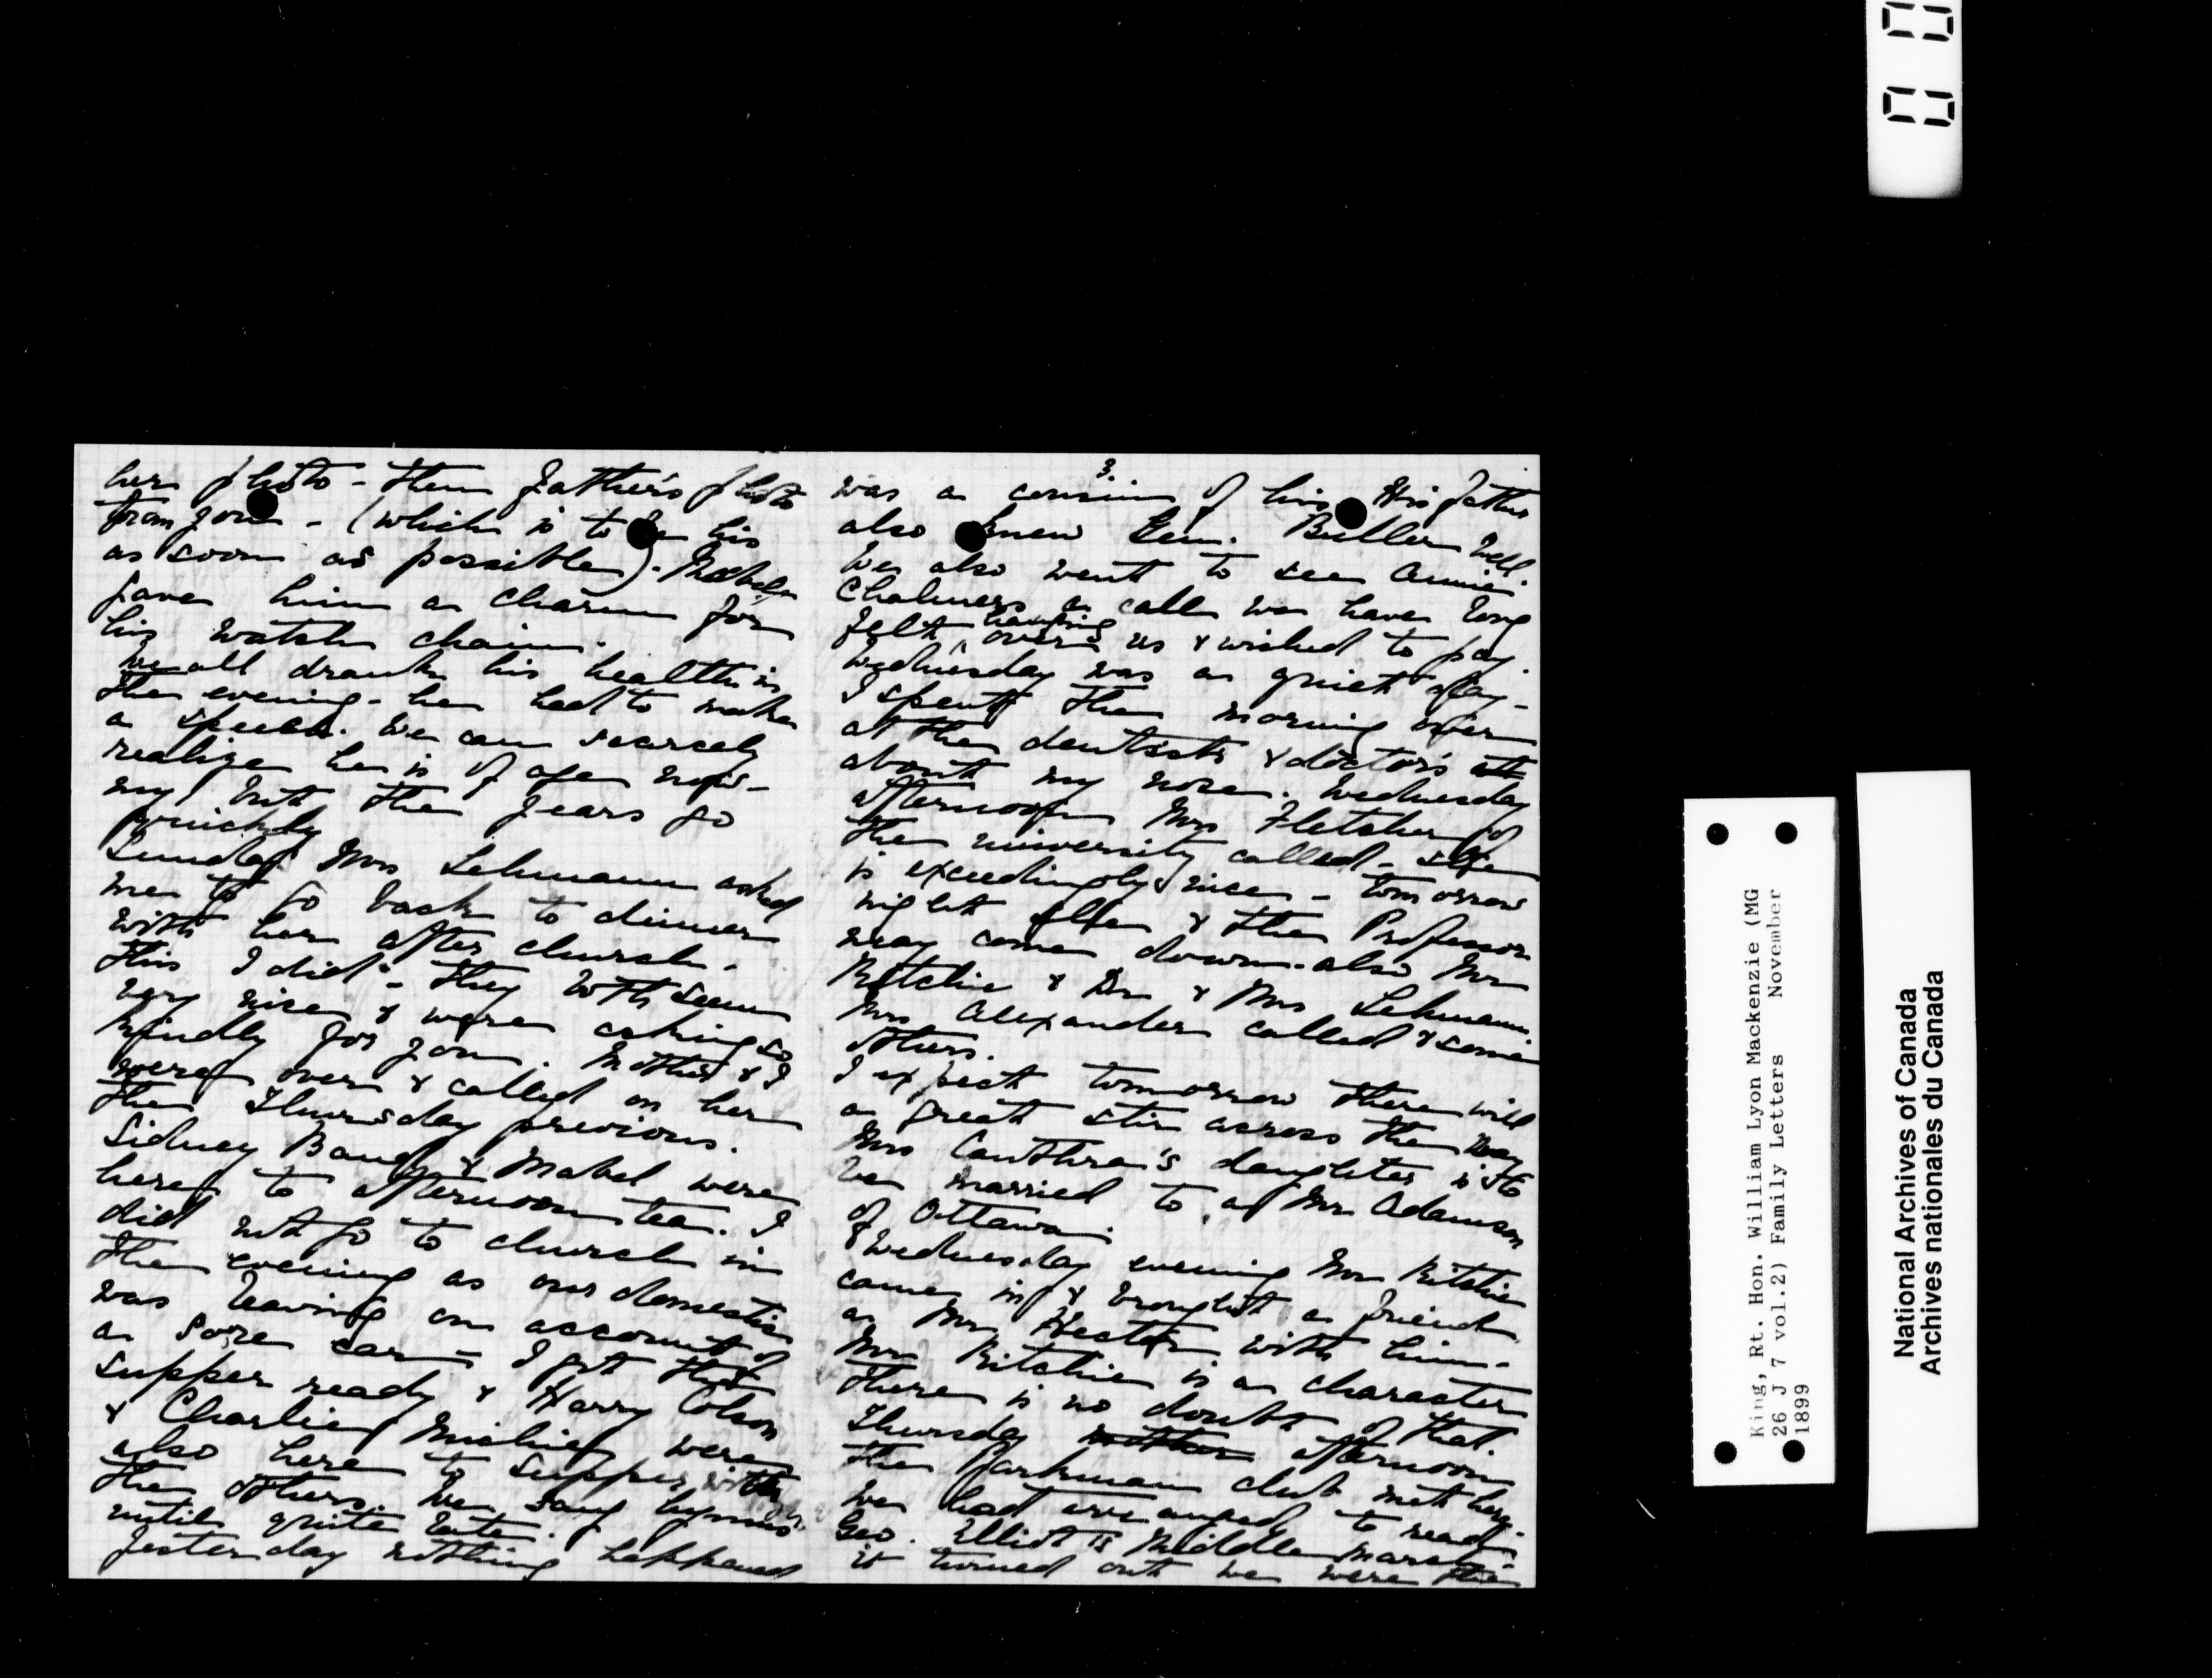 her photo - then father's photo
from you - (which is to be his
as soon as possible). Mabel
gave him a charm for
his watch chain.
We all drank his health in
the evening - he had to make
a speech. We can scarcely
realize he is of age now -
my but the years go
quickly
Sunday Mrs Lehmann asked
me to go back to dinner
with her after church -
this I did - they both seem
very nice & were asking so
kindly for you. Mother & I
were over & called on her
the Thursday previous.
Sidney Band & Mabel were
here to afternoon tea. I
did not go to church in
the evening as our domestic
was leaving on account of
a sore ear - I got the
supper ready & Harry Colson
& Charlie were
also here to supper with
the others. We sang hymns
until quite late.
Yesterday nothing happened
3.
was a cousin of his His father
also knew Gen. Buller well.
We also went to see Annie
Chalmers a call we have long
felt hanging over us & wished to pay.
Wednesday was a quiet day -
I spent the morning over
at the dentists & doctor's
about my nose. Wednesday
afternoon Mrs Fletcher of
the university called - she
is exceedingly nice - tomorrow
night she & the Professor
may come down - also Mr
Ritchie & Dr & Mrs Lehmann.
Mrs Alexander called & some
others.
I expect tomorrow there will
a great stir across the way
Mrs Cawthra's daughter is to
be married to a Mr Adamson
of Ottawa.
Wednesday evening Mr Ritchie
came in & brought a friend
a Mr with him.
Mr Ritchie is a character
there is no doubt of that.
Thursday mother afternoon
the Parkman club met here.
We had arranged to read
Geo. Elliot's Middlemarch -
it turned out we were the
King, Rt. Hon. William Lyon Mackenzie (MG
26 J 7 vol.2) Family Letters November
1899
National Archives of Canada
Archives nationales du Canada